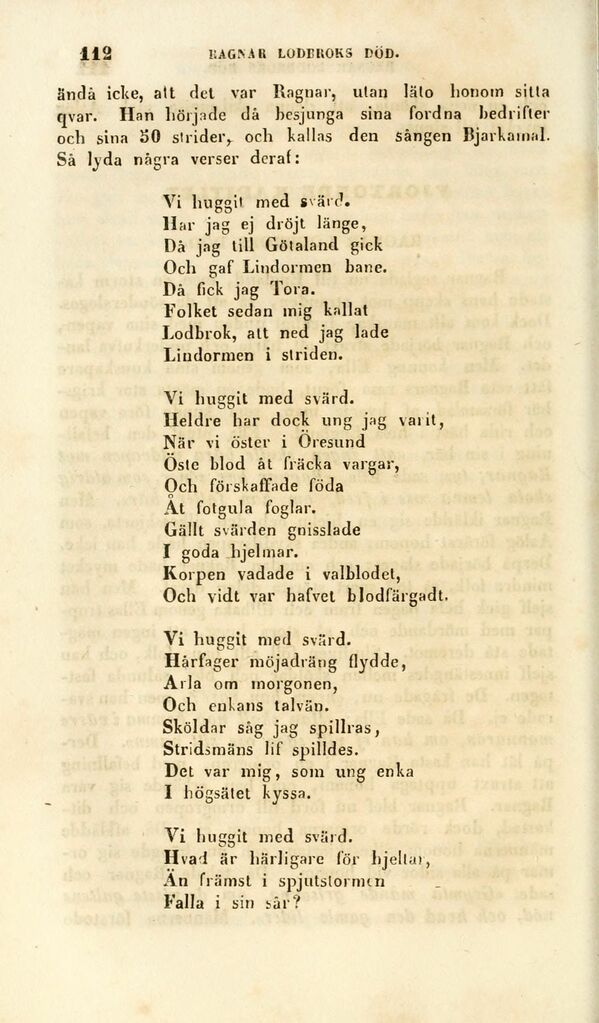 112 RAGNAR LODBROKS DÖD.
ändå icke, att det var Ragnar, utan läto honom sitta
qvar. Han började då besjunga sina fordna bedrifter
och sina 50 strider, och kallas den sången Bjarkamal.
Så lyda några verser deraf:
Vi huggit med svärd.
Har jag ej dröjt länge,
Då jag till Götaland gick
Och gaf Lindormen bane.
Då fick jag Tora.
Folket sedan mig kallat
Lodbrok, att ned jag lade
Lindormen i striden.
Vi huggit med svärd.
Heldre har dock ung jag varit,
När vi öster i Öresund
Öste blod åt fräcka vargar,
Och förskaffade föda
Åt fotgula foglar.
Gällt svärden gnisslade
I goda hjelmar.
Korpen vadade i valblodet,
Och vidt var hafvet blodfärgadt.
Vi huggit med svärd.
Hårfager möjadräng flydde,
Arla om morgonen,
Och enkans talvän.
Sköldar såg jag spillras,
Stridsmäns lif spilldes.
Det var mig, som ung enka
I högsätet kyssa.
Vi huggit med svärd.
Hvad är härligare för hjeltar,
Än främst i spjutstormen
Falla i sin sår?